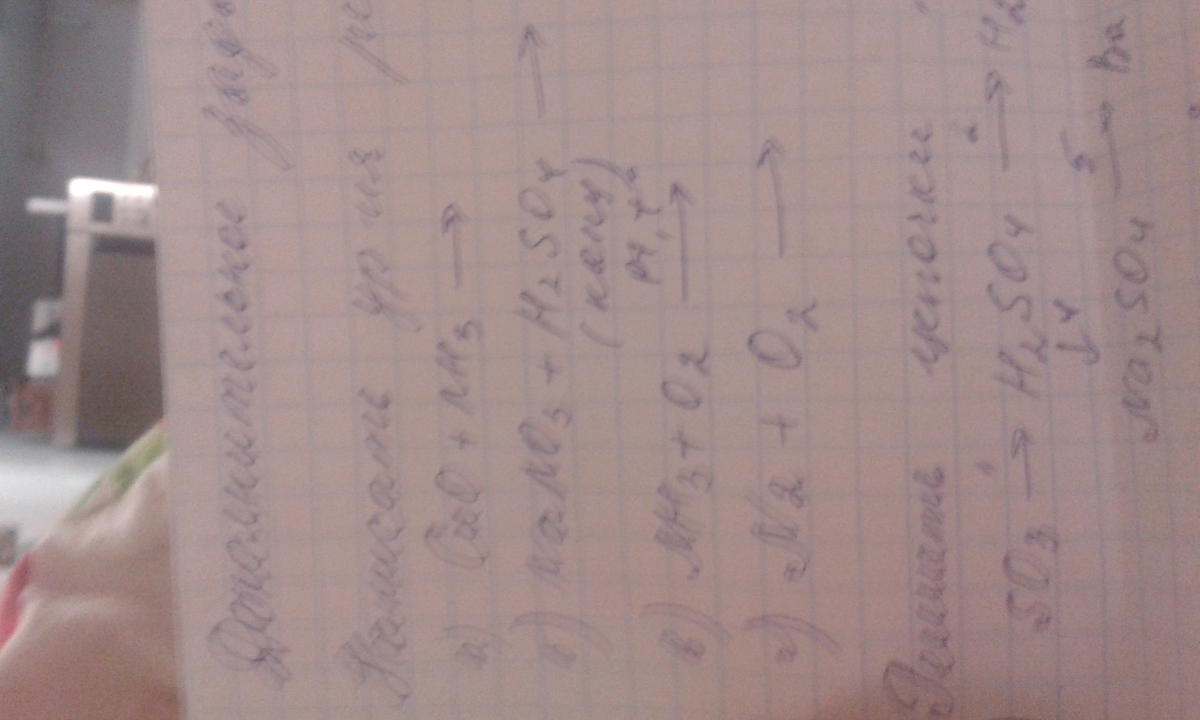 Дополнительное зад
Написать ур-ия р
а) CuO + NH3 →
б) NaNO3 + H2SO4 →
(конц)
Pt, t°
в) NH3 + O2 →
г) N2 + O2 →
Решить цепочки
SO3 → H2SO4 2→ H2
↓4
Na2SO4 5→ Ba